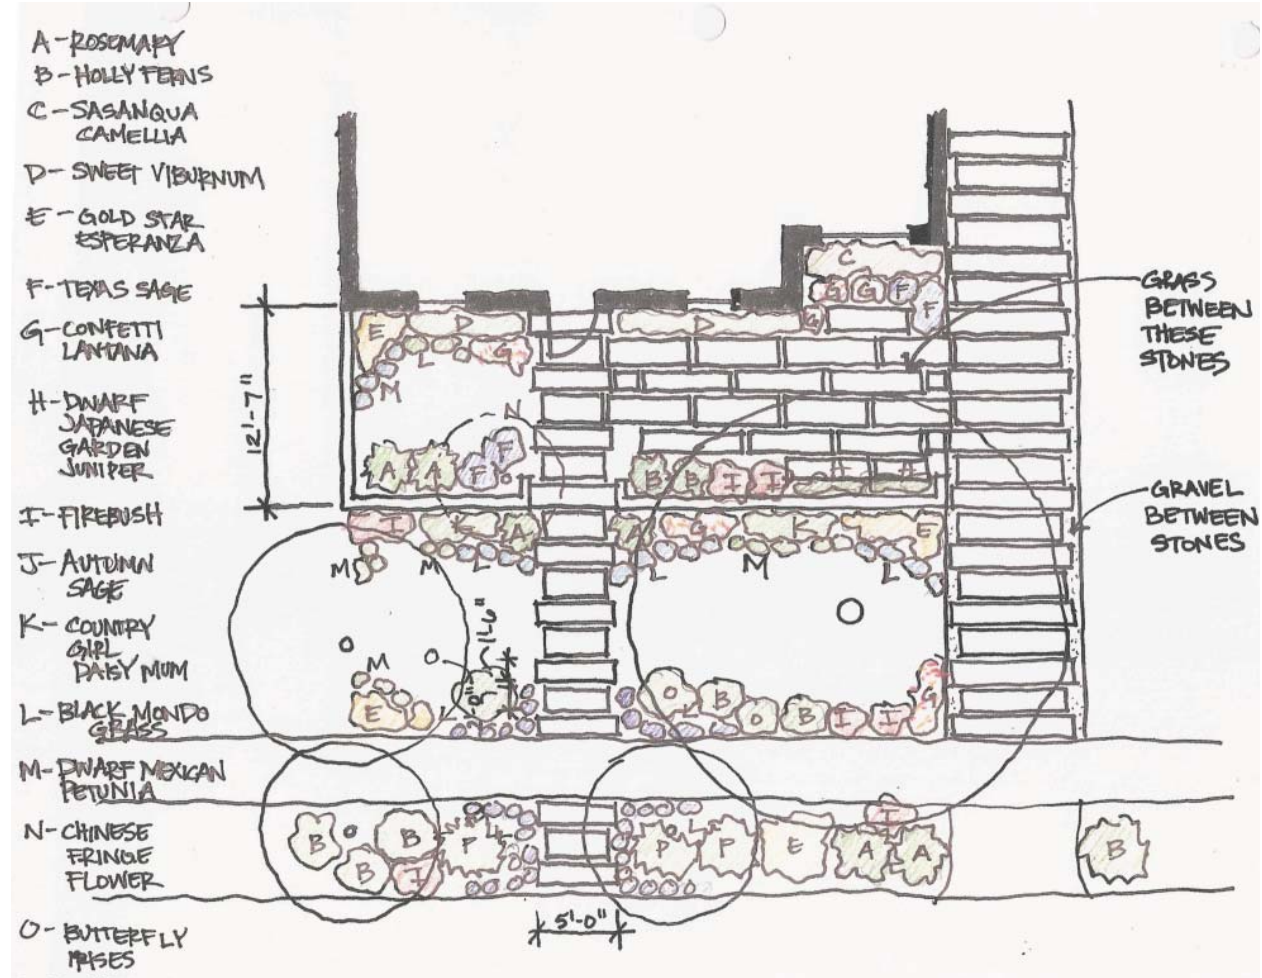 A-ROSEMARY
B-HOLLY FERNS
C-SASANQUA
CAMELLIA
D-SWEET VIBURNUM
E-GOLD STAR
ESPERANZA
F-TEXAS SAGE
G-CONFETTI
LANTANA
H-DWARF
JAPANESE
GARDEN
JUNIPER
I-FIREBUSH
J-AUTUMN
SAGE
K-COUNTRY
GIRL
DAISY MUM
L-BLACK MONDO
GRASS
M-DWARF MEXICAN
PETUNIA
N-CHINESE
FRINGE
FLOWER
O-BUTTERFLY
IRISES
C
G G F
G F
E D D
L G
M
N
12'-7"
A A F F
B B I I H H
I K A G K E
M M L L M L
1'-6"
M
E L
O B O B I I G
L
B B B I P
P P L E A A I
B
5'-0"
GRASS
BETWEEN
THESE
STONES
GRAVEL
BETWEEN
STONES